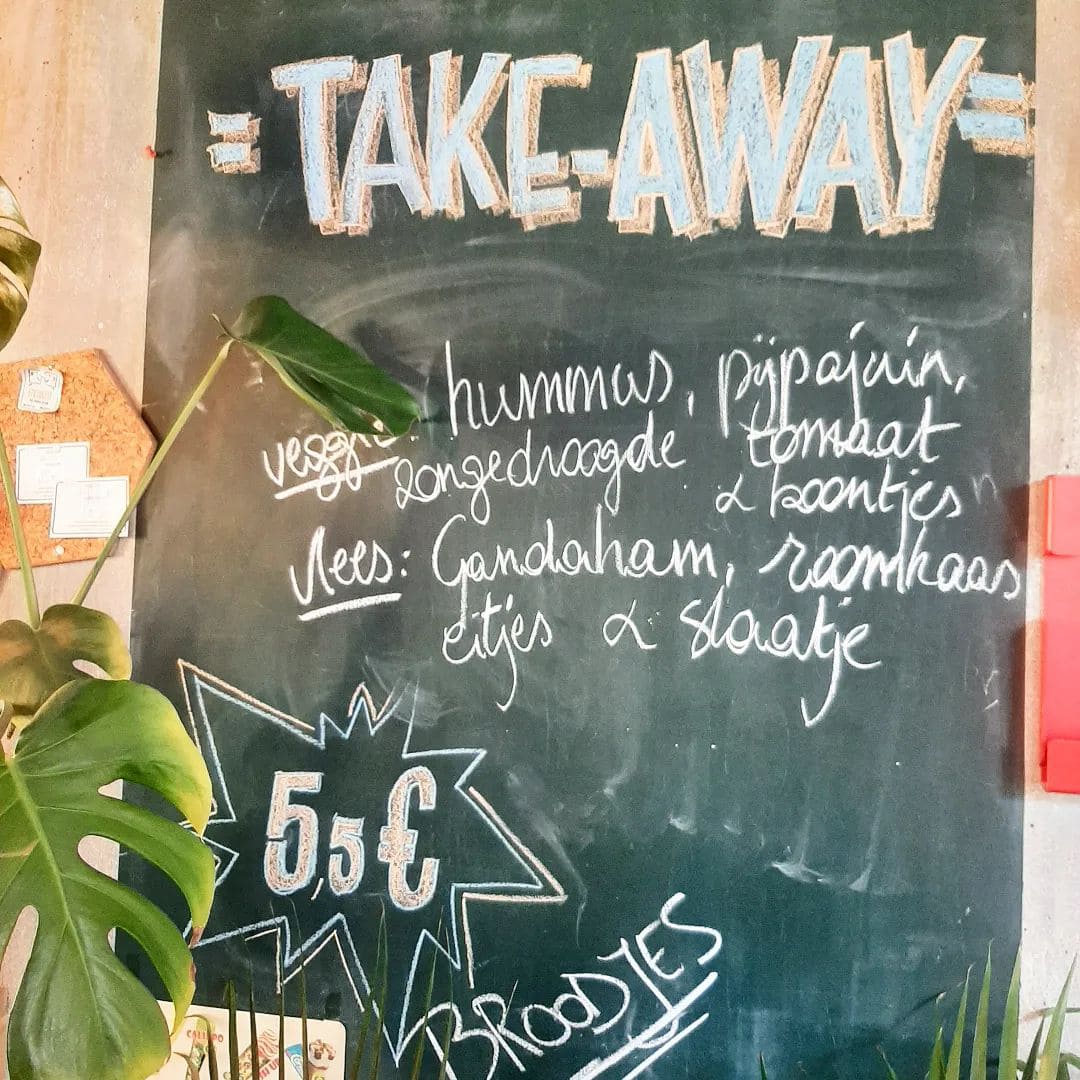 = TAKE-AWAY =
veggie: hummus, pijpajuin,
zongedroogde tomaat
& boontjes
Vlees: Gandaham, roomkaas
eitjes & slaatje
5,5€
BROODJES
CALIPPO